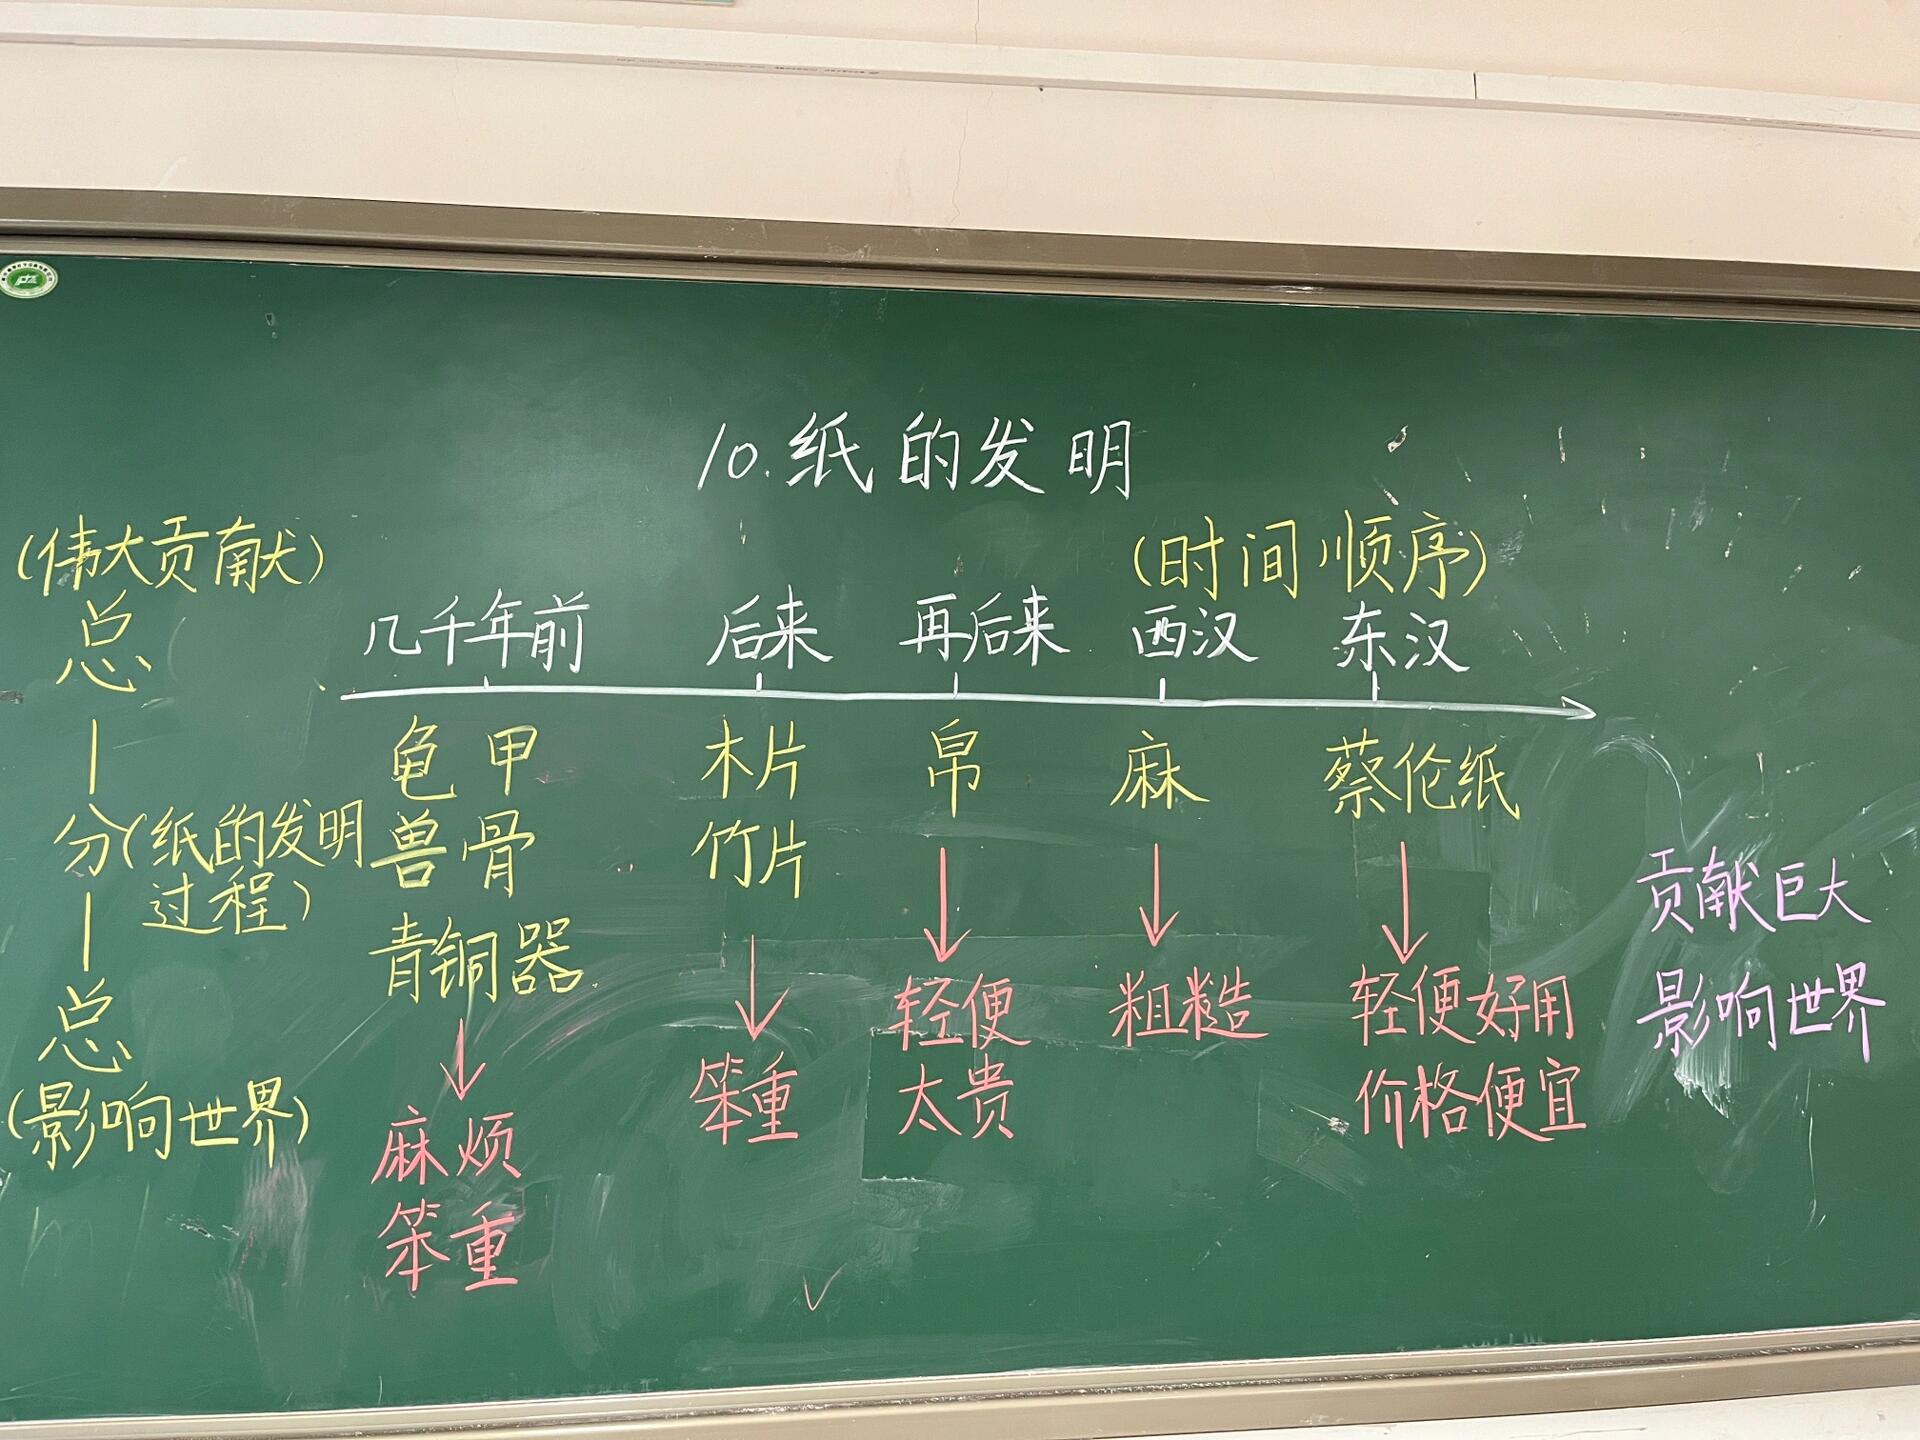 10.纸的发明
(伟大贡献)
总
分(纸的发明
过程)
总
(影响世界)
(时间顺序)
几千年前 后来 再后来 西汉 东汉
龟甲 木片 帛 麻 蔡伦纸
兽骨 竹片
青铜器
麻烦
笨重
笨重
轻便
太贵
粗糙
轻便好用
价格便宜
贡献巨大
影响世界